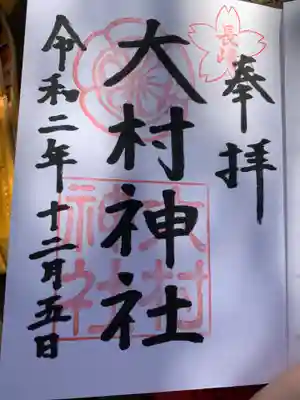 奉拝
長崎
大村神社
大村
神社
令和二年十二月五日